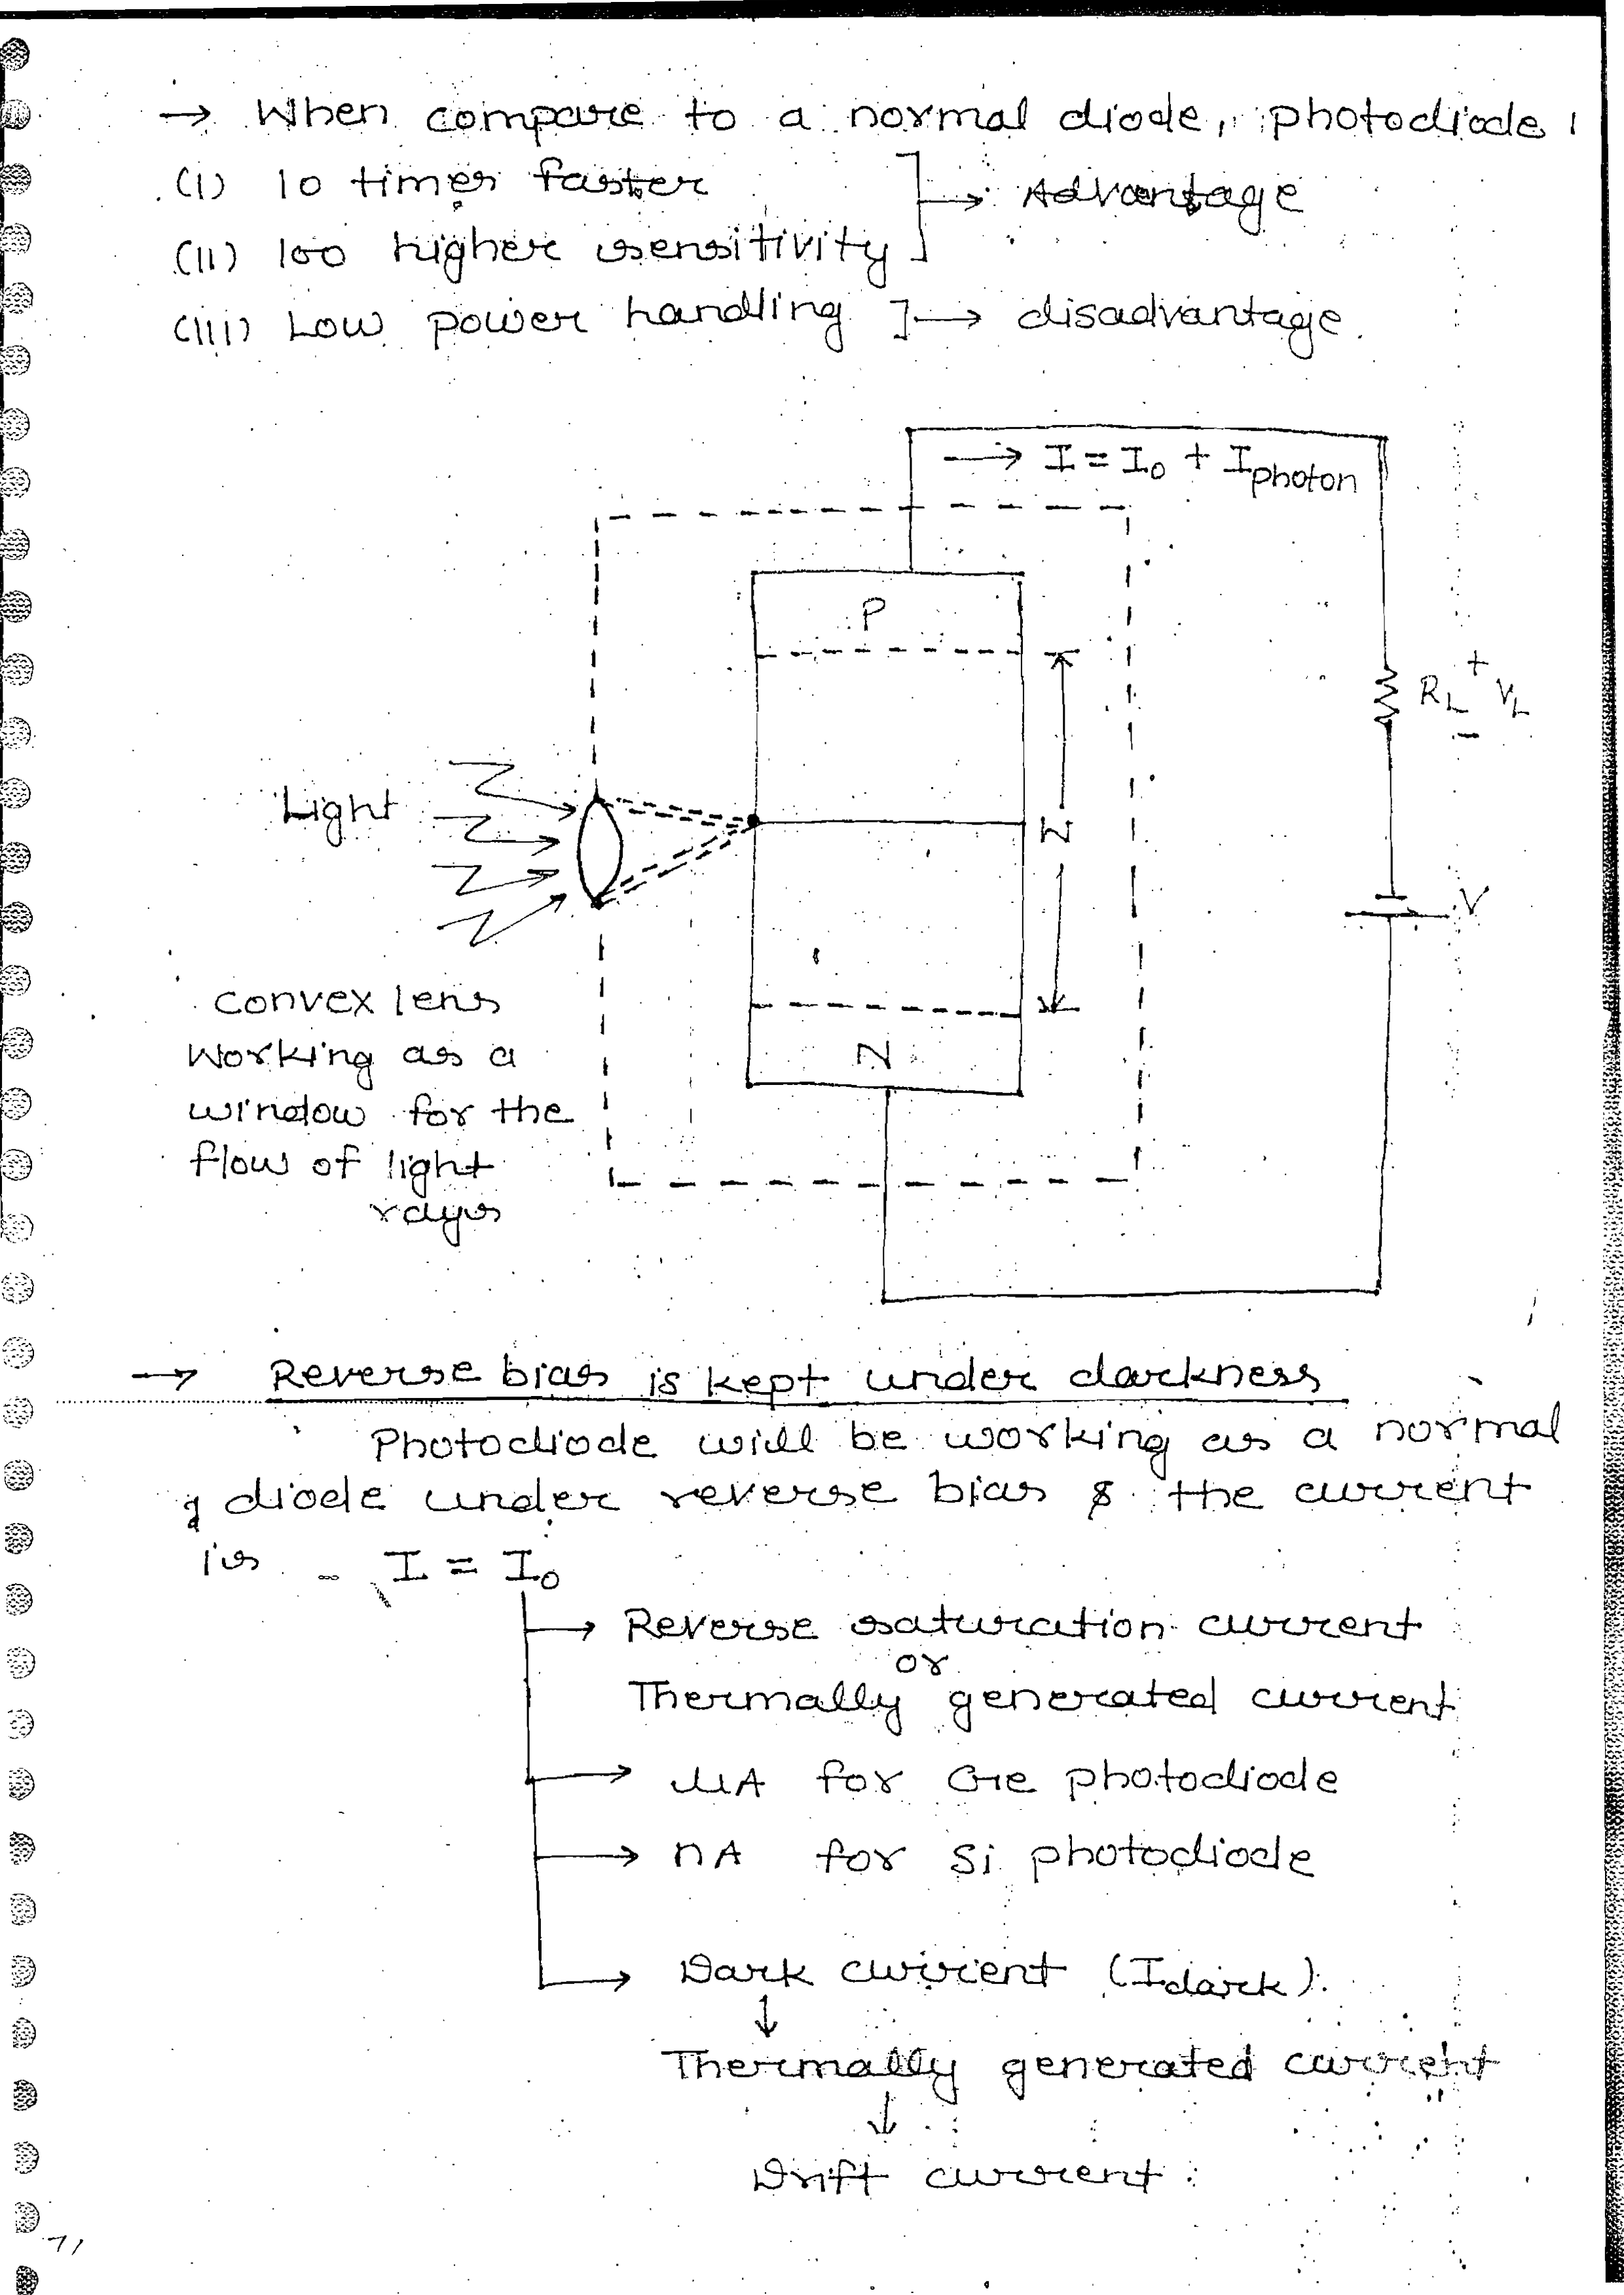 → When compare to a normal diode, photodiode,
(I) 10 times faster
(II) 100 higher sensitivity
→ Advantage
(III) Low power handling ]→ disadvantage.
→ I = I0 + Iphoton
P
RL + VL -
Light
W
V
convex lens
Working as a
window for the
flow of light
rays
N
→ Reverse bias is kept under darkness
Photodiode will be working as a normal
diode under reverse bias & the current
is I = I0
→ Reverse saturation current
or
Thermally generated current
→ μA for Ge photodiode
→ nA for Si photodiode
→ Dark current (Idark).
↓
Thermally generated current
↓
Drift current
71